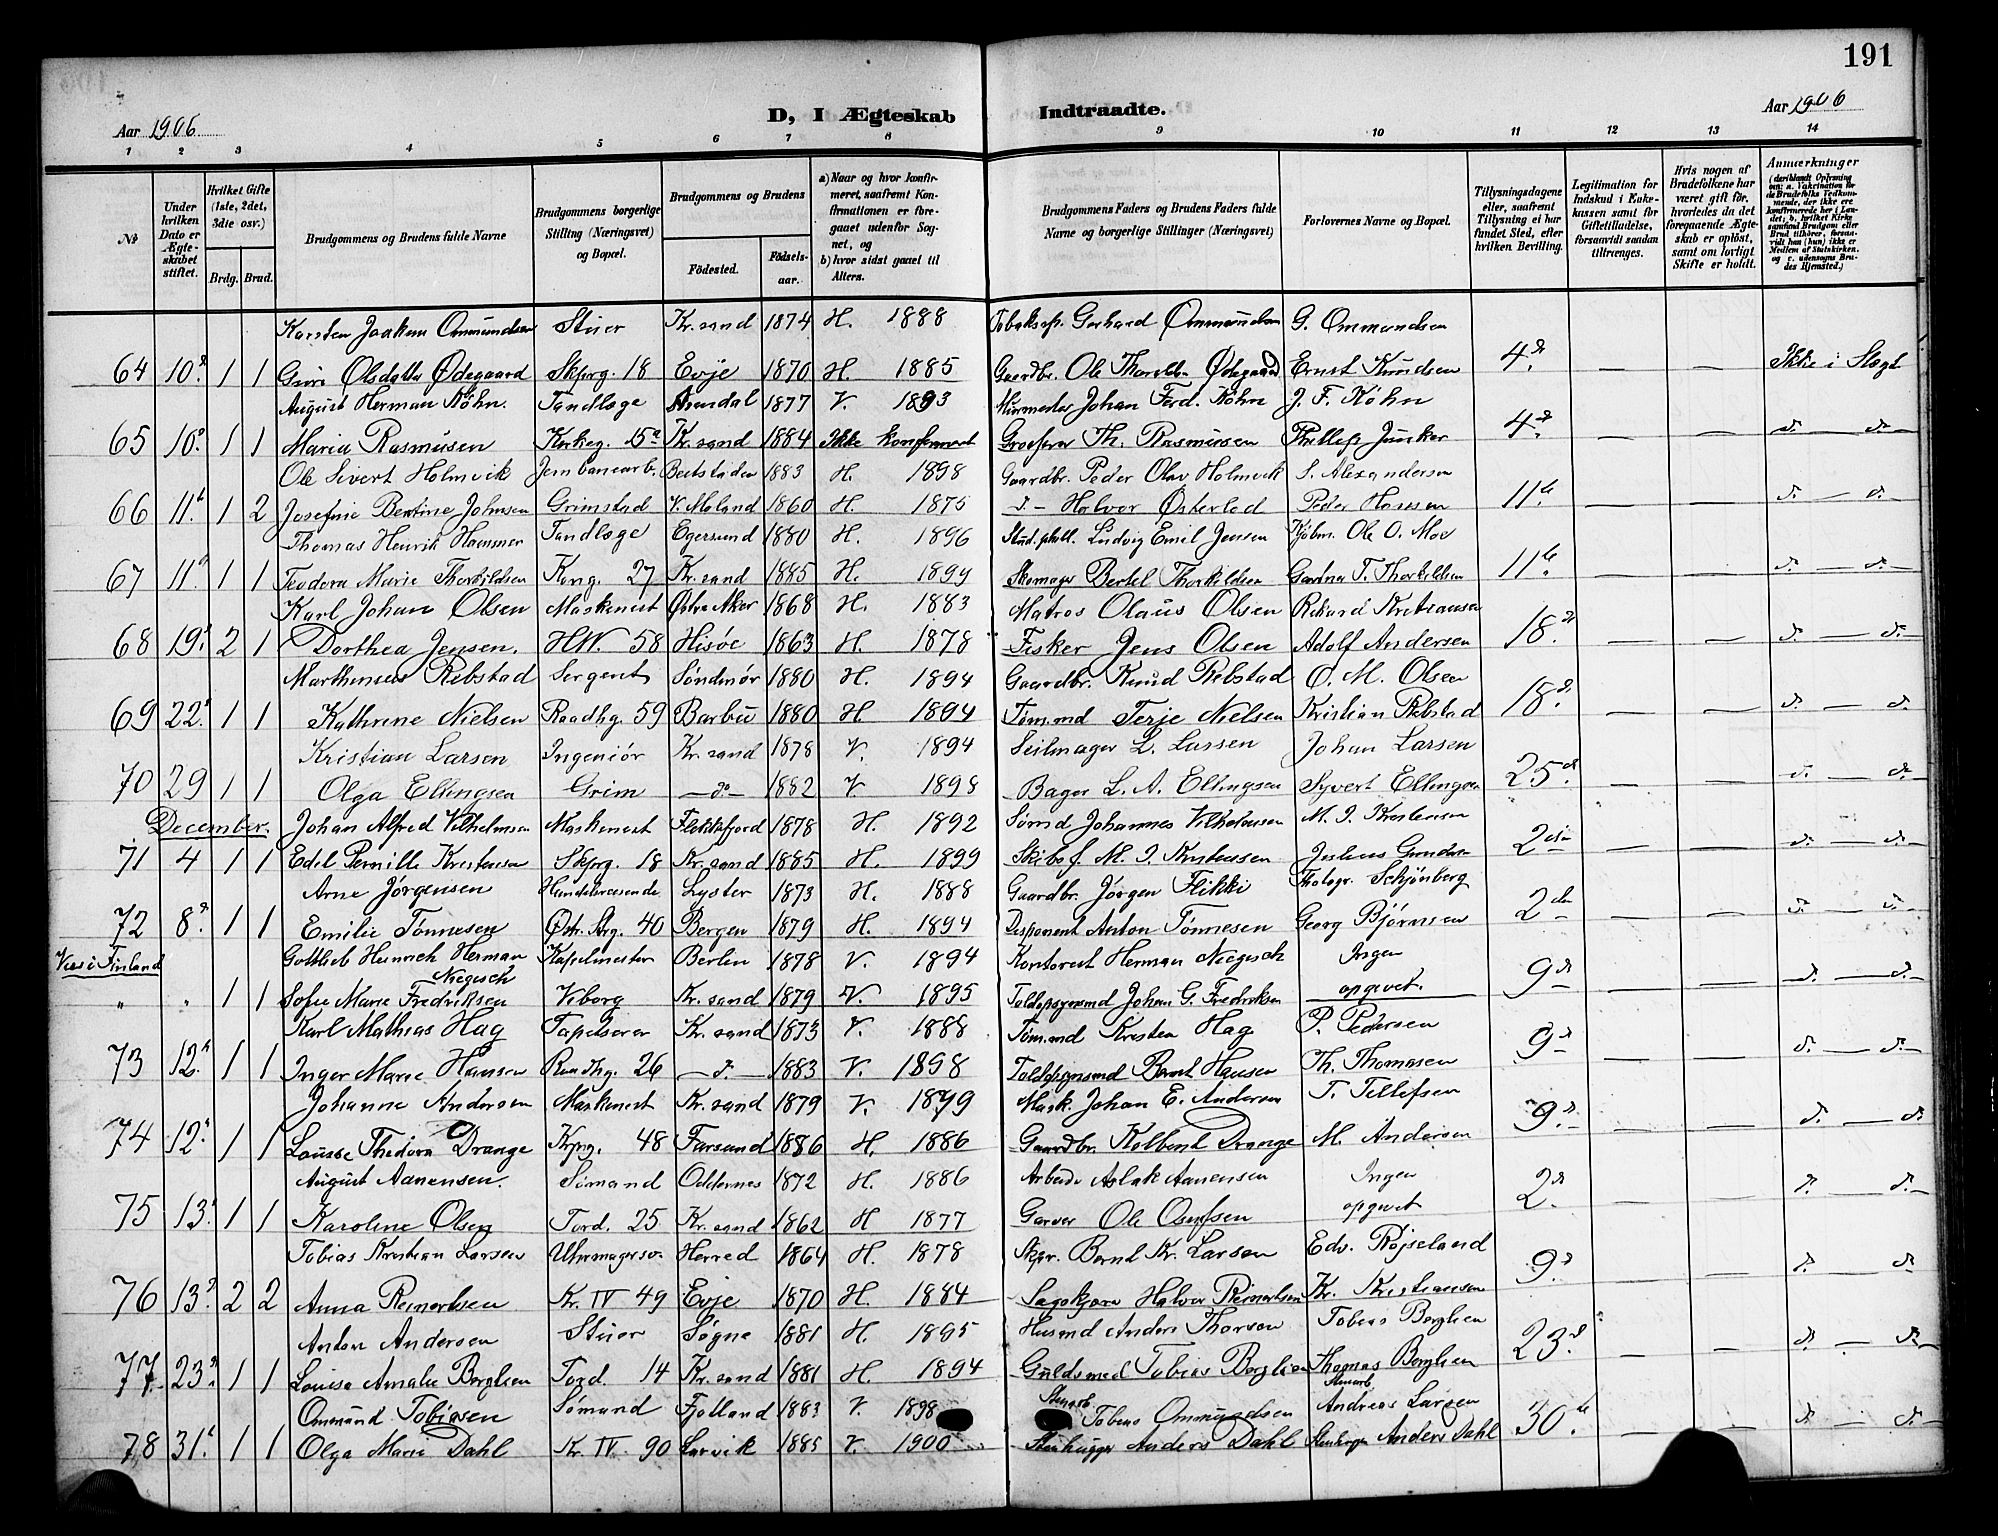 191
Aar 1906.
D, I Ægteskab Indtraadte.
Aar 1906
1 2 3 4 5 6 7 8 9 10 11 12 13 14
№
Under hvilken Dato er Ægteskabet stiftet.
Hvilket Gifte (1ste, 2det, 3die osv.)
Brdg. Brud.
Brudgommens og Brudens fulde Navne
Brudgommens borgerlige Stilling (Næringsvei) og Bopæl.
Brudgommens og Brudens
Fødested.
Fødselsaar.
a) Naar og hvor konfirmeret, saafremt Konfirmationen er foregaaet udenfor Sognet, og
b) hvor sidst gaaet til Alters.
Brudgommens Faders og Brudens Faders fulde Navne og borgerlige Stillinger (Næringsvei)
Forlovernes Navne og Bopæl.
Tillysningsdagene eller, saafremt Tillysning ei har fundet Sted, efter hvilken Bevilling.
Legitimation for Indskud i Enkekassen samt for Giftetilladelse, forsaavidt saadan tiltrænges.
Hvis nogen af Brudefolkene har været gift før, hvorledes da det foregaaende Ægteskab er opløst, samt om lovligt Skifte er holdt.
Anmærkninger
(deriblandt Oplysning om: a. Vakcination for de Brudefolks Vedkommende, der ikke ere konfirmerede her i Landet; b. hvilket Kirkesamfund Brudgom eller Brud tilhører, forsaavidt han (hun) ikke er Medlem af Statskirken. og c. udensogns Brudes Hjemsted.)
Karsten Joakim Ommundsen Stuer Kr.sand 1874 H. 1888 Gerhard Ommundsen G. Ommundsen
64 10. 1 1 Guri Olsdatter Ødegaard Skprg. 18 Evje 1870 H. 1885 Gaardbr. Ole Ødegaard Ernst Knudsen 4. Ikke i Slægt
August Herman Köhn. Tandlæge Arendal 1877 V. 1893 Murmester Johan Ferd. Köhn J. F. Köhn
65 10. 1 1 Maria Rasmusen Kirkeg. 15 Kr.sand 1884 Ikke konfirmert Th. Rasmusen Phillip Junker 4. — — d. — d.
Ole Sivert Holmvik Jernbanearb. Beitstaden 1883 H. 1898 Gaardbr. Peder Olav Holmvik S. Alexandersen
66 11. 1 2 Josefine Bertine Johnsen Grimstad V. Moland 1860 H. 1875 d- Halvor Østerlod Peder Hansen 11. — — d. — d.
Thomas Henrik Hammer Tandlæge Egersund 1880 H. 1896 Stud. phil. Ludvig Emil Jensen Kjøbm. Ole O. Moe
67 11. 1 1 Teodora Marie Thorkildsen Kong. 27 Kr.sand 1885 H. 1899 Skomager Bertel Thorkildsen Gartner T. Thorkildsen 11. — — d. — d.
Karl Johan Olsen Maskenist Østre Aker 1868 H. 1883 Matros Olaus Olsen Rikard Kristiansen
68 19. 2 1 Dorthea Jensen. H.W. 58 Hisøe 1863 H. 1878 Fisker Jens Olsen Adolf Andersen 18. — — d. — d.
Marthinius Rebstad Sergent Søndmør 1880 H. 1894 Gaardbr. Knud Rebstad O. M. Olsen
69 22. 1 1 Kathrine Nielsen Raadhg. 59 Barbu 1880 H. 1894 Tøm.md Terje Nielsen Kristian Rebstad 18. — — d. — d.
Kristian Larsen Ingeniør Kr.sand 1878 V. 1894 Seilmager L. Larsen Johan Larsen
70 29 1 1 Olga Ellingsen Grim — d. — 1882 V 1898 Bager L. A. Ellingsen Syvert Ellingsen 25. — — d. — d.
December. Johan Alfred Vilhelmsen Maskenist Flekkefjord 1878 H. 1892 Sømd Johannes Vilhelmsen M. J. Kristensen
71 4 1 1 Edel Pernille Kristensen Skprg. 18 Kr.sand 1885 H. 1899 Skibsf. M. J. Kristensen 2 — — d. — d.
Arne Jørgensen Handelsreisende Lyster 1873 H. 1888 Gaardbr. Jørgen Flikki Photogr. Schjønberg
72 8. 1 1 Emilie Tønnesen Øst. Strg. 40 Bergen 1879 H. 1894 Disponent Anton Tønnesen Georg Bjørnsen 2 — — d. — d.
Viet i Finland Gottlieb Heinrich Herman Niegisch Kapelmester Berlin 1878 V. 1894 Kontorist Herman Niegisch Ingen
" " 1 1 Sofie Marie Fredriksen Viborg Kr.sand 1879 V. 1895 Toldopsynsmd Johan G. Fredriksen opgivet. 9 — — d. — d.
Karl Mathias Hag Tapetserer Kr.sand 1873 V. 1888 Tøm.md Kristen Hag P. Pedersen
73 12. 1 1 Inger Marie Hansen Raadhg. 26 — d. — 1883 V. 1898 Toldopsynsmd Bernt Hansen Th. Thomasen 9 — — d. — d.
Johanne Andersen Maskenist Kr.sand 1879 V. 1899 Mask. Johan E. Andersen T. Tellefsen
74 12. 1 1 Louise Thedora Drange Kprg. 48 Farsund 1886 H. 1886 Gaardbr. Kolbent Drange M. Andersen 9. — — d. — d.
August Aanensen. Sømand Oddernes 1872 H. 1886 Arbeider Aslak Aanensen Ingen
75 13. 1 1 Karoline Olsen Tord. 25 Kr.sand 1862 H 1877 Garver Ole Osufsen opgivet 2. — — d. — d.
Tobias Kristian Larsen Uhrmagersv. Herred 1864 H. 1878 Skpr. Bernt Kr. Larsen Edv. Røjseland
76 13. 2 2 Anna Reinertsen Kr. IV 49 Evje 1870 H. 1884 Halvor Reinertsen Kr. Kristiansen 9. — — d. — d.
Anton Andersen Stuer Søgne 1881 H. 1895 Husmd Anders Thorsen Tobias Berglien
77. 23. 1 1 Louise Amalie Berglien Tord. 14 Kr.sand 1881 H. 1894 Guldsmed Tobias Berglien Thomas Berglien 23. — — d. — d.
Ommund Tobiasen Sømand Fjotland 1883 V. 1898 Stenarb Tobias Ommundsen Stenarb Andreas Larsen
78 31. 1 1 Olga Marie Dahl Kr. IV. 90 Larvik 1885 V. 1900 Stenhugger Anders Dahl Stenhugger Anders Dahl 30. — — d. — d.